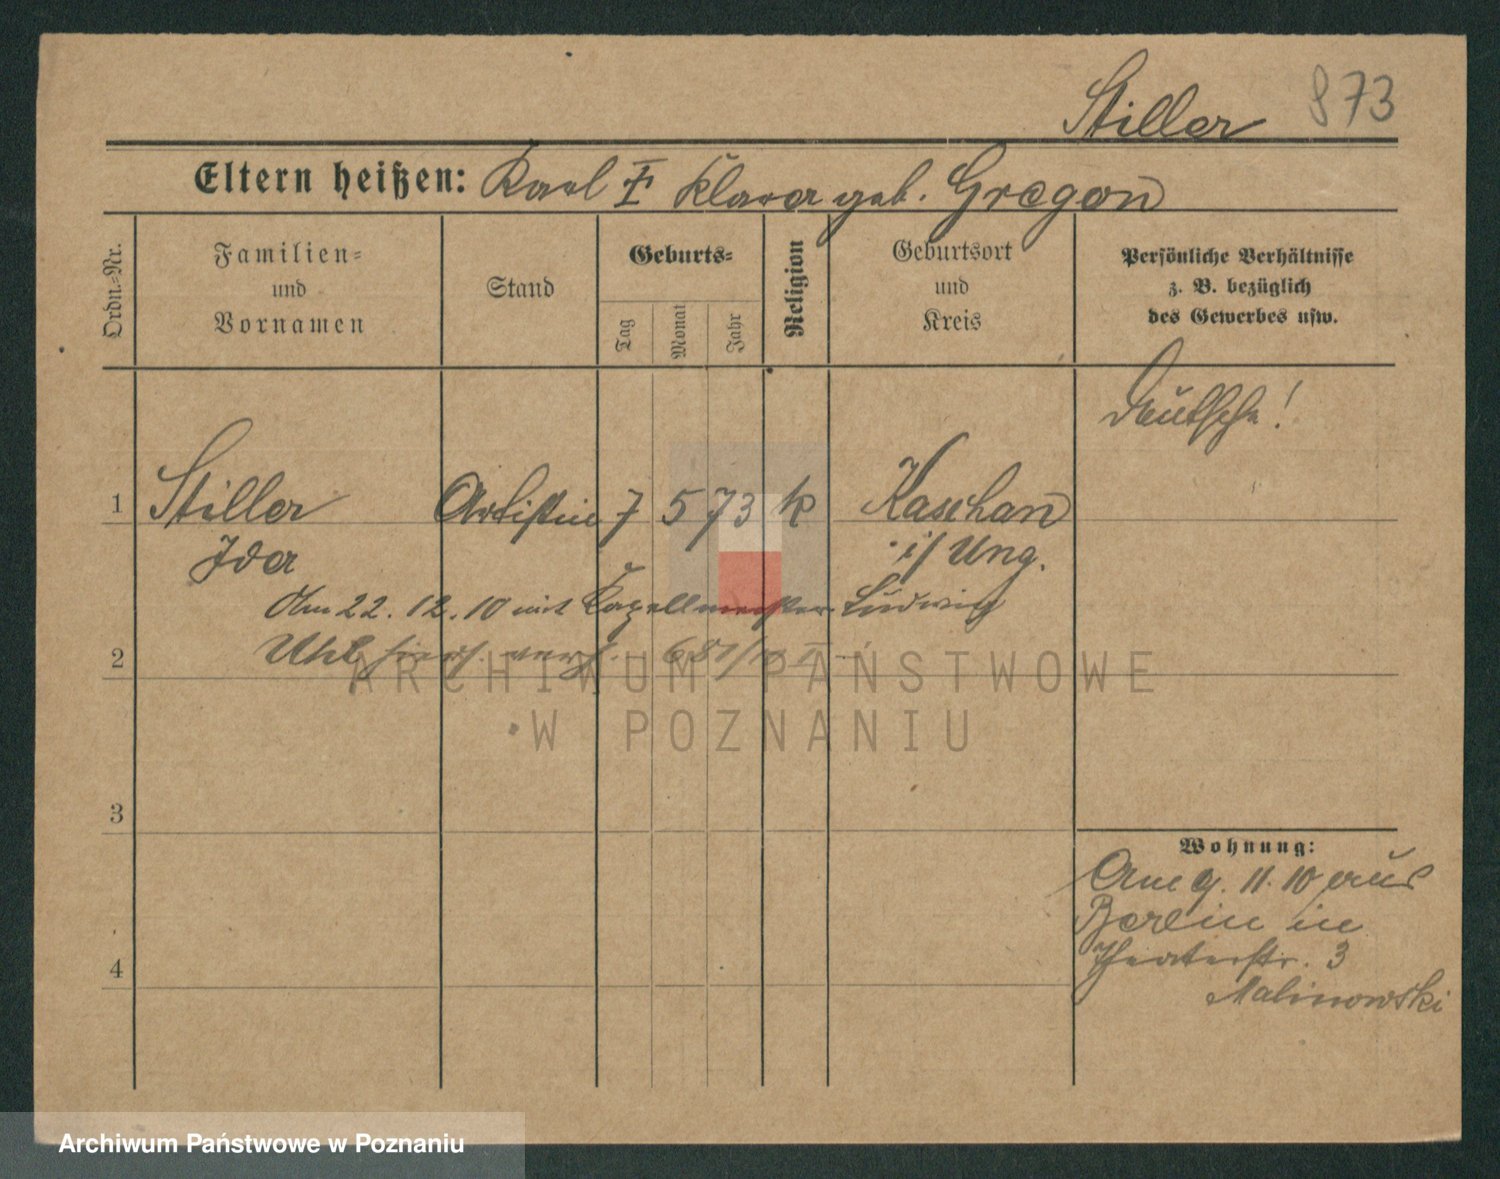 Stiller 873
Eltern heißen: Karl u. Klara geb. Gregon
Ordn.=Nr.
Familien=
und
Vornamen
Stand
Geburts=
Tag
Monat
Jahr
Religion
Geburtsort
und
Kreis
Persönliche Verhältnisse
z. B. bezüglich
des Gewerbes usw.
Deutsche!
1 Stiller Artistin 7 5 73 k Kaschau
Ida i/ Ung.
Am 22.12.10 mit Kapellmeister Ludwig
2 Uhl verh. 681/10
3
Wohnung:
Am 9. 11. 10 aus
Berlin in
Theaterstr. 3
4
Malinowski
ARCHIWUM PAŃSTWOWE
W POZNANIU
Archiwum Państwowe w Poznaniu